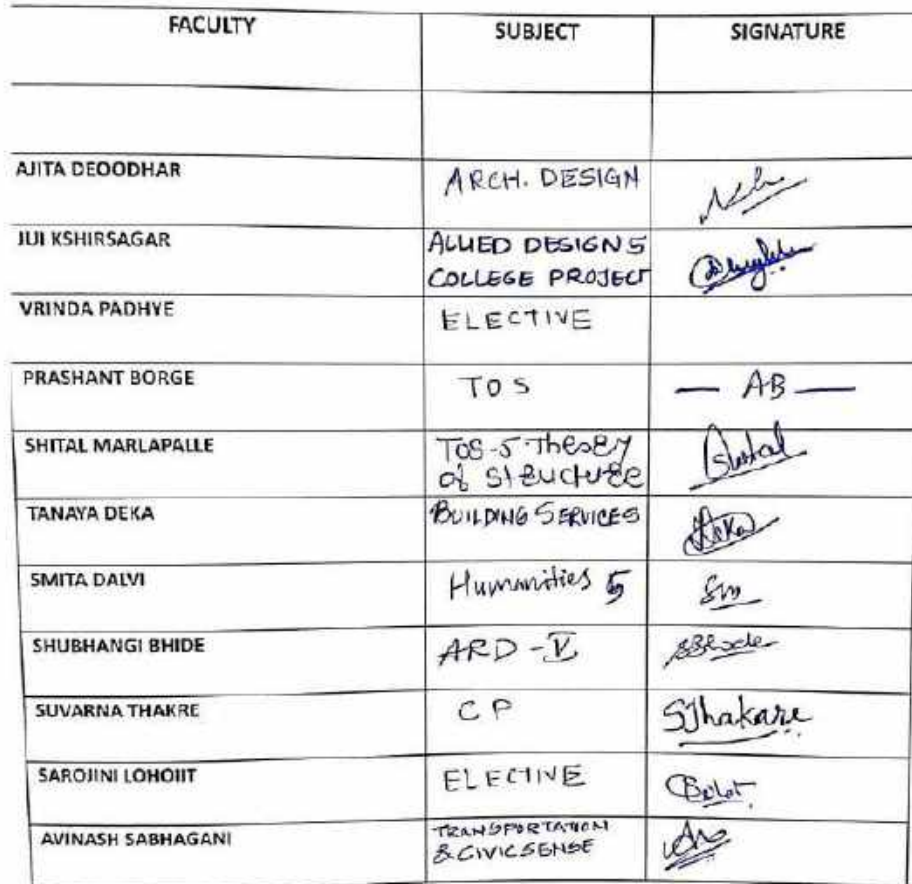 FACULTY SUBJECT SIGNATURE
AJITA DEOODHAR ARCH. DESIGN
JUI KSHIRSAGAR ALLIED DESIGN 5
COLLEGE PROJECT
VRINDA PADHYE ELECTIVE
PRASHANT BORGE TOS — AB —
SHITAL MARLAPALLE TOS-5 Theory
of Structure Shital
TANAYA DEKA BUILDING SERVICES Deka
SMITA DALVI Humanities 5 Sm
SHUBHANGI BHIDE ARD - V
SUVARNA THAKRE CP SThakare
SAROJINI LOHOIIT ELECTIVE
AVINASH SABHAGANI TRANSPORTATION
& CIVIC SENSE